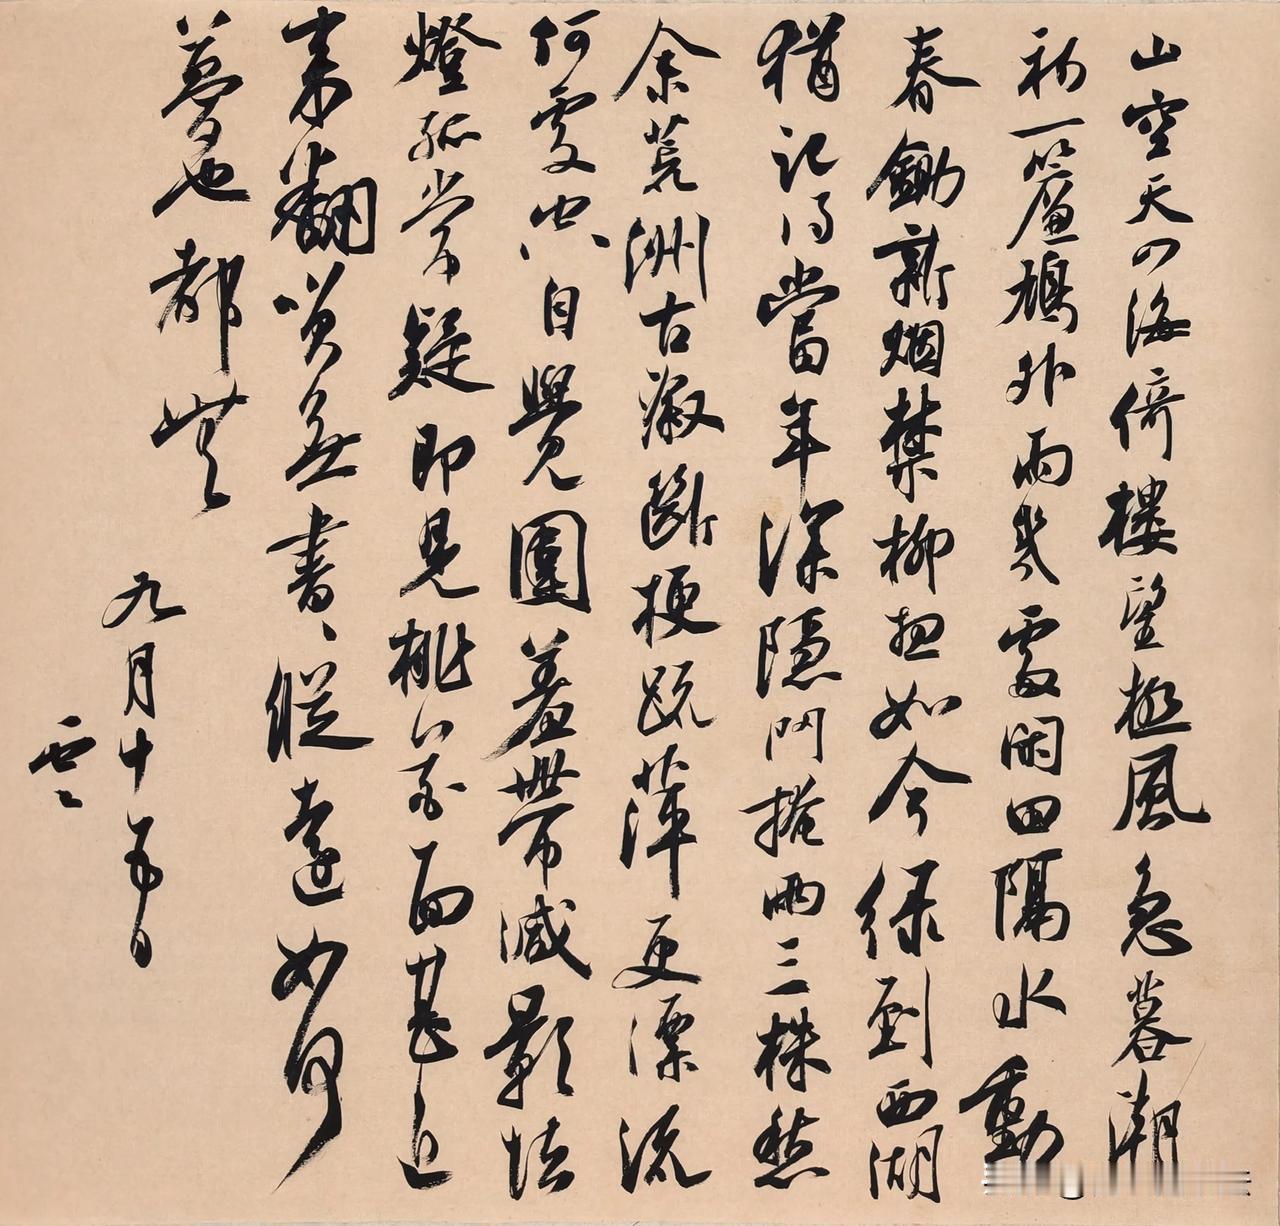 山空天入海倚樓望極風急暮潮
初一簾鳩外雨幾處閑田隔水動
春鋤新烟禁柳想如今緑到西湖
猶記得當年深隱門掩兩三株愁
余荒洲古溆斷梗疏萍更漂流
何處空自覺圍羞帶減影怯
燈孤常疑即見桃花面甚近
来翻笑無書、縱遠如何
夢也都無
九月十五日